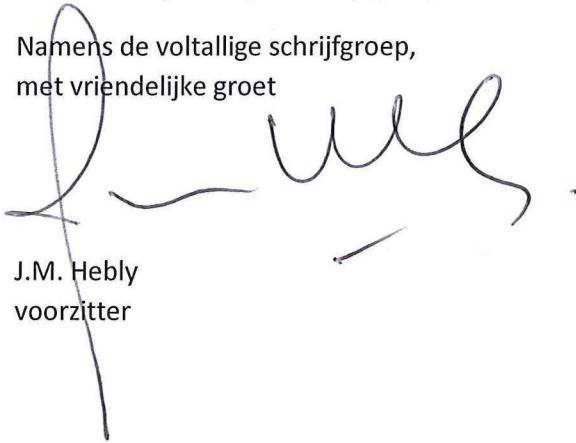 Namens de voltallige schrijfgroep,
met vriendelijke groet
J.M. Hebly
voorzitter